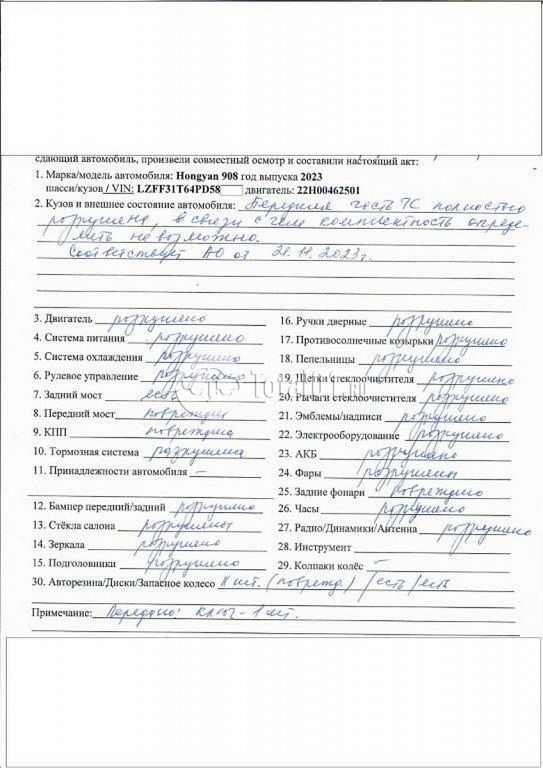 сдающий автомобиль, произвели совместный осмотр и составили настоящий акт:
1. Марка/модель автомобиля: Hongyan 908 год выпуска 2023
шасси/кузов / VIN: LZFF31T64PD58 двигатель: 22H00462501
2. Кузов и внешнее состояние автомобиля: Передняя часть ТС полностью
разрушена, в связи с чем комплектность опреде-
лить невозможно.
Соответствует АО от 21.11.2023г.
3. Двигатель разрушено
4. Система питания разрушено
5. Система охлаждения разрушено
6. Рулевое управление разрушено
7. Задний мост есть
8. Передний мост поврежден
9. КПП повреждена
10. Тормозная система разрушена
11. Принадлежности автомобиля –
12. Бампер передний/задний разрушено
13. Стёкла салона разрушены
14. Зеркала разрушено
15. Подголовники разрушено
16. Ручки дверные разрушено
17. Противосолнечные козырьки разрушено
18. Пепельницы разрушено
19. Щётки стеклоочистителя разрушено
20. Рычаги стеклоочистителя разрушено
21. Эмблемы/надписи разрушено
22. Электрооборудование разрушено
23. АКБ разрушено
24. Фары разрушены
25. Задние фонари повреждено
26. Часы разрушено
27. Радио/Динамики/Антенна разрушено
28. Инструмент –
29. Колпаки колёс –
30. Авторезина/Диски/Запасное колесо шт. (поврежд.) / есть / есть
Примечание: Передано: ключ - 1 шт.